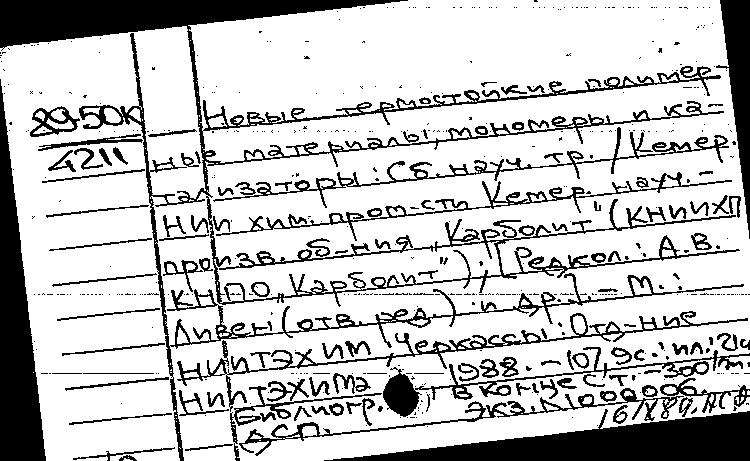 89-50К
4211
Новые термостойкие полимер-
ные материалы, мономеры и ка-
тализаторы: Сб. науч. тр. / Кемер.
НИИ хим. пром-сти Кемер. науч.-
произв. об-ния „Карболит" (КНИИХП
КНПО „Карболит"); [Редкол.: А.В.
Ливен (отв. ред.) и др.]. - М.:
НИИТЭХИМ, Черкассы: Отд-ние
НИИТЭХИМа, 1988. - 107, 9 с.: ил.; 21 см
Библиогр. в конце ст. - 300 р.
ДСП. Экз. N 000006.